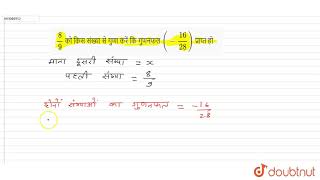 8/9 को किस संख्या से गुणा करें कि गुणनफल (-16/28) प्राप्त हो
माना दूसरी संख्या = x
पहली संख्या = 8/9
दोनों संख्याओं का गुणनफल = -16/28
doubtnut